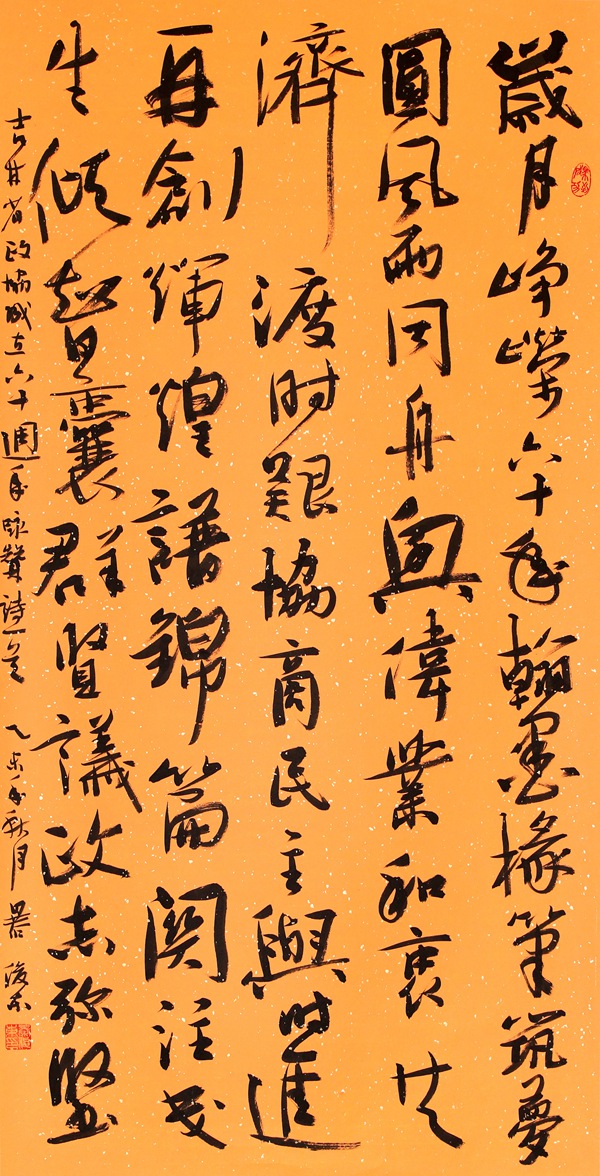 歲月崢嶸六十年翰墨椽筆筑夢
圓風雨同舟興偉業和衷共
濟渡时艱協商民主與时進
再創輝煌譜錦篇関注民
生傾智囊群賢議政志弥堅
吉林省政協成立六十週年咏贊詩一首 乙未年秋月